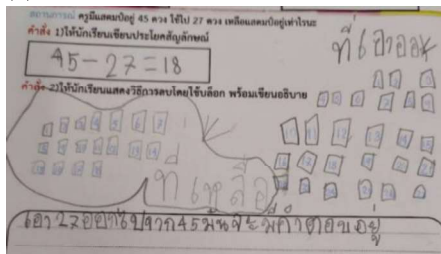 สถานการณ์ ครูมีแสตมป์อยู่ 45 ดวง ใช้ไป 27 ดวง เหลือแสตมป์อยู่เท่าไรนะ
คำสั่ง 1)ให้นักเรียนเขียนประโยคสัญลักษณ์
45-27=18
ที่เอาออก
คำสั่ง 2)ให้นักเรียนแสดงวิธีการลบโดยใช้บล็อก พร้อมเขียนอธิบาย
ที่เหลือ
เอา27ออกไปจาก45มันจะมีคำตอบอยู่